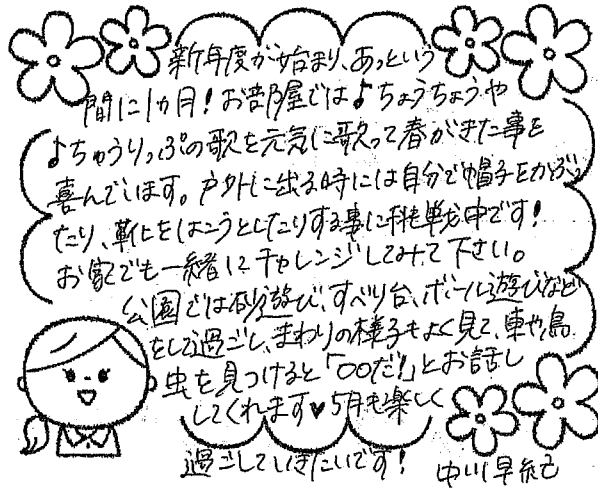 新年度が始まり、あっという
間に1ヵ月！お部屋では♪ちょうちょうや
♪ちゅうりっぷの歌を元気に歌って春がきた事を
喜んでいます。戸外に出る時には自分で帽子をかぶっ
たり、靴をはこうとしたりする事に挑戦中です！
お家でも一緒にチャレンジしてみて下さい。
公園では砂遊び、すべり台、ボール遊びなど
をして過ごし、まわりの様子もよく見て、車や鳥
虫を見つけると「○○だ！」とお話し
してくれます♥5月も楽しく
過ごしていきたいです！
中川早紀